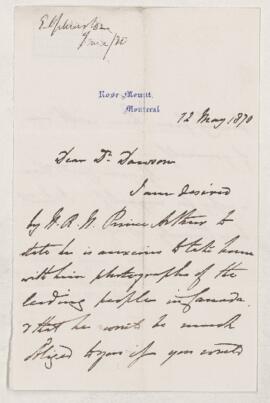 Rose Mount,
Montreal
12 May 1870
Dear Dr. Dawson
I am desired
by H. R. H. Prince Arthur to
state he is anxious to take home
with him photographs of the
leading people in Canada
& that he would be much
obliged to you if you would